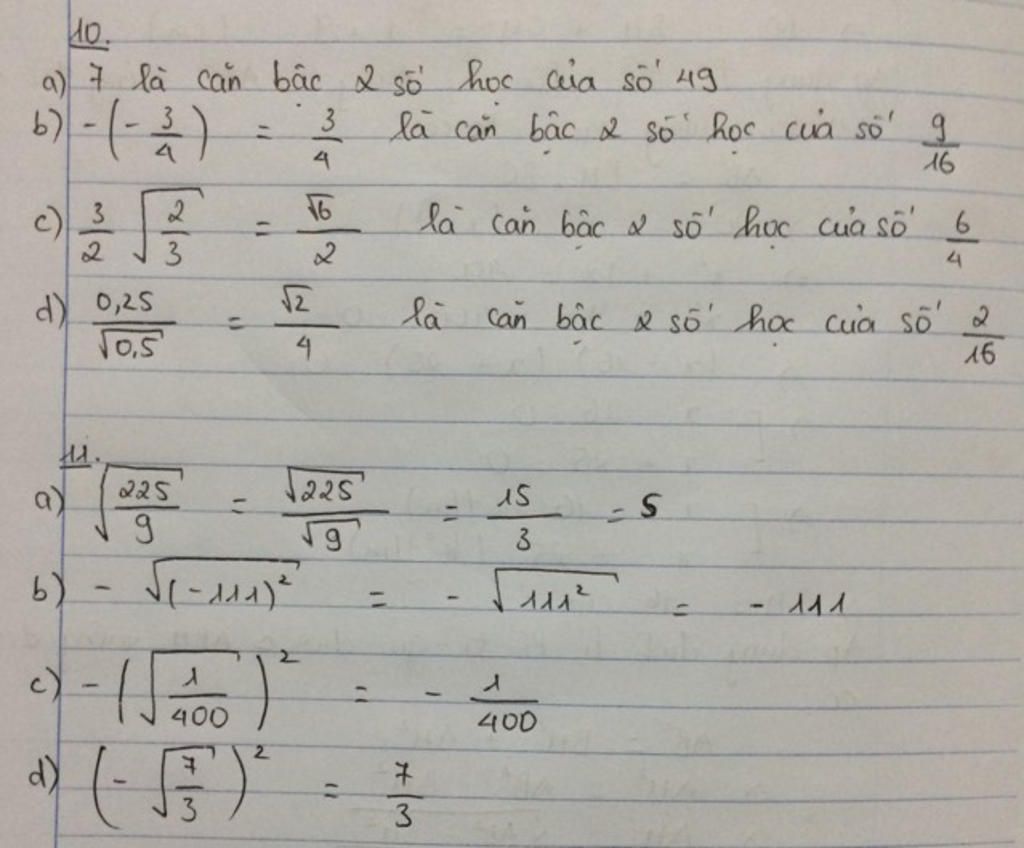 10.
a) 7 là căn bậc 2 số học của số 49
b) -(-3/4) = 3/4 là căn bậc 2 số học của số 9/16
c) 3/2 √(2/3) = √6/2 là căn bậc 2 số học của số 6/4
d) 0,25/√0,5 = √2/4 là căn bậc 2 số học của số 2/16
11.
a) √(225/9) = √225/√9 = 15/3 = 5
b) - √((-111)²) = - √(111²) = - 111
c) - (√(1/400))² = - 1/400
d) (- √(7/3))² = 7/3